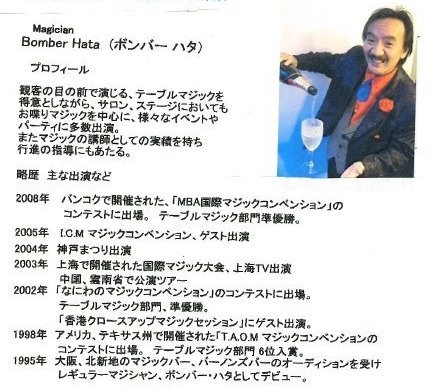 Magician
Bomber Hata (ボンバー ハタ)
プロフィール
観客の目の前で演じる、テーブルマジックを
得意としながら、サロン、ステージにおいても
お喋りマジックを中心に、様々なイベントや
パーティに多数出演。
またマジックの講師としての実績を持ち
行進の指導にもあたる。
略歴 主な出演など
2008年 バンコクで開催された、「MBA国際マジックコンベンション」の
コンテストに出場。 テーブルマジック部門準優勝。
2005年 I.C.M マジックコンベンション、ゲスト出演
2004年 神戸まつり出演
2003年 上海で開催された国際マジック大会、上海TV出演
中国、雲南省で公演ツアー
2002年 「なにわのマジックコンベンション」のコンテストに出場。
テーブルマジック部門、準優勝。
「香港クロースアップマジックセッション」にゲスト出演。
1998年 アメリカ、テキサス州で開催された「T.A.O.M マジックコンベンションの
コンテストに出場。 テーブルマジック部門 6位入賞。
1995年 大阪、北新地のマジックバー、バーノンズバーのオーディションを受け
レギュラーマジシャン、ボンバー・ハタとしてデビュー。